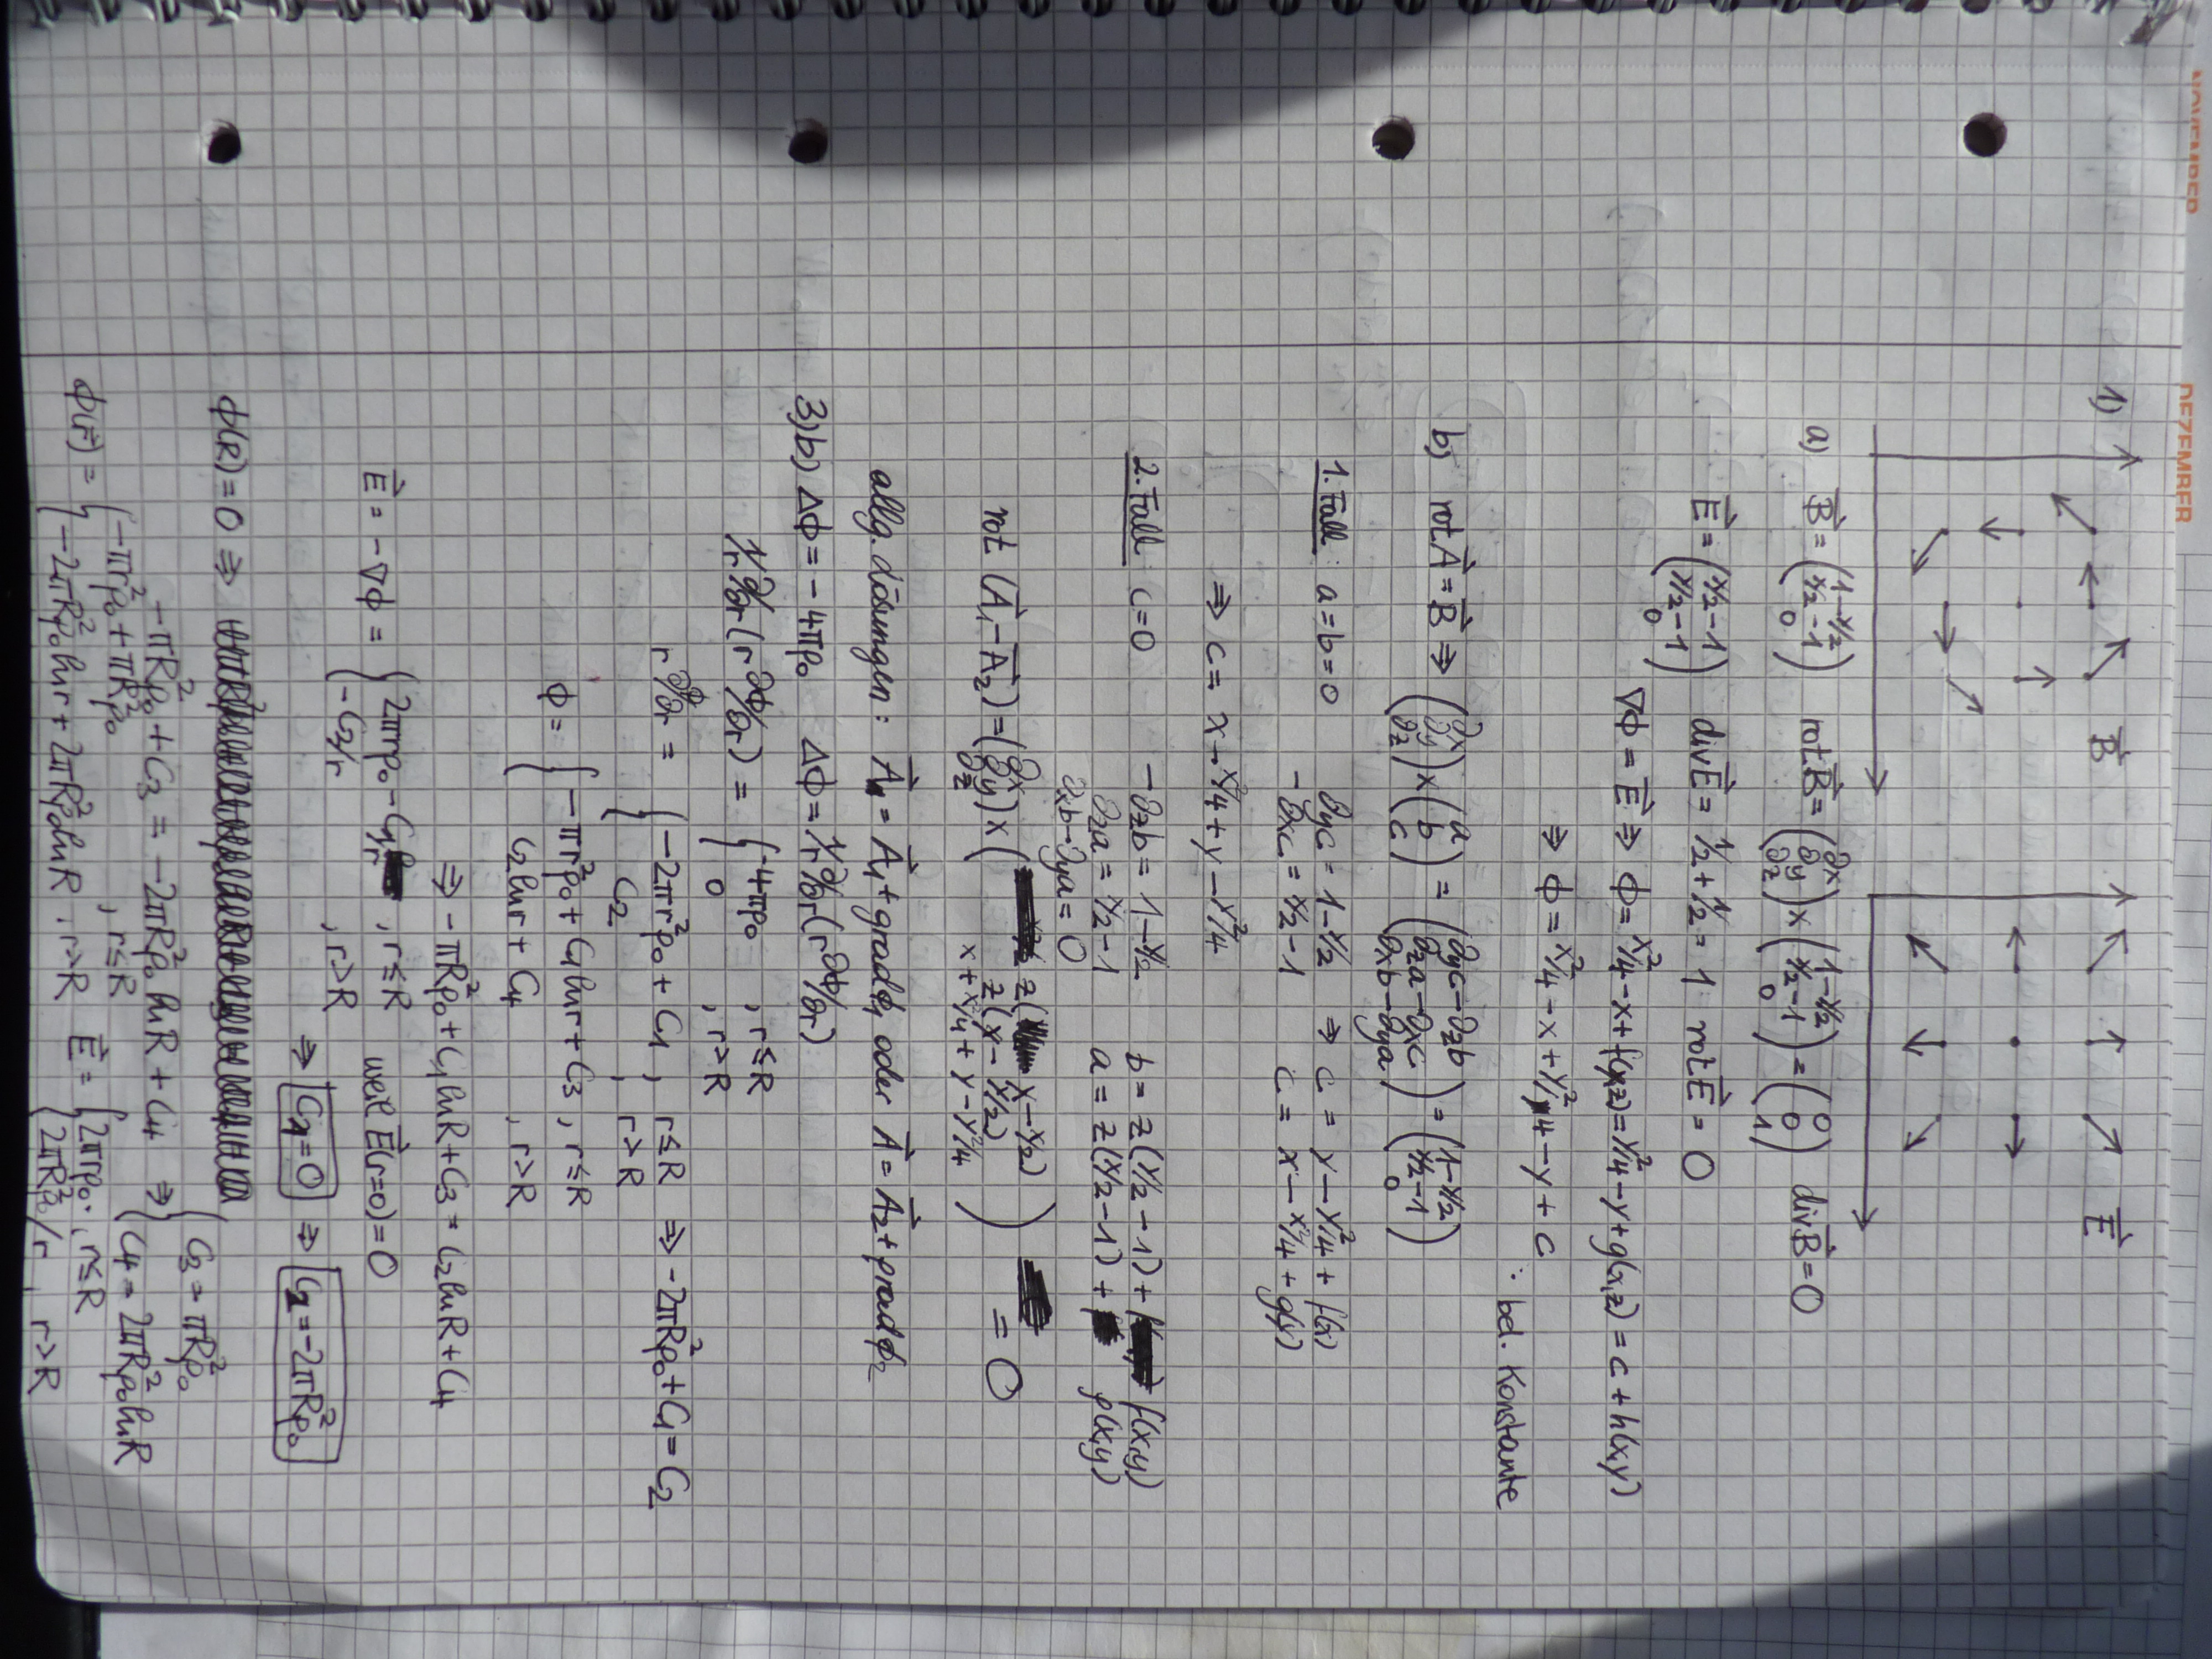 NOVEMBER
DEZEMBER
1) B⃗ E⃗
a) B⃗ = (1-y/2, x/2-1, 0) rot B⃗ = (∂x, ∂y, ∂z) × (1-y/2, x/2-1, 0) = (0, 0, 1) div B⃗ = 0
E⃗ = (x/2-1, y/2-1, 0) div E⃗ = 1/2 + 1/2 = 1 rot E⃗ = 0
∇ϕ = E⃗ ⇒ ϕ = x²/4 - x + f(y,z) = y²/4 - y + g(x,z) = c + h(x,y)
⇒ ϕ = x²/4 - x + y²/4 - y + c
bel. Konstante
b) rot A⃗ = B⃗ ⇒ (∂x, ∂y, ∂z) × (a, b, c) = (∂yc-∂zb, ∂za-∂xc, ∂xb-∂ya) = (1-y/2, x/2-1, 0)
1. Fall: a=b=0 ∂yc = 1-y/2 ⇒ c = y - y²/4 + f(x)
-∂xc = x/2-1 c = x - x²/4 + g(y)
⇒ c = x - x²/4 + y - y²/4
2. Fall: c=0 -∂zb = 1-y/2 b = z(y/2-1) + f(x,y)
∂za = x/2-1 a = z(x/2-1) + g(x,y)
∂xb-∂ya = 0
rot (A⃗₁-A⃗₂) = (∂x, ∂y, ∂z) × (z(x-x/2), z(x-y/2), x+x²/4+y-y²/4) = 0
allg. Lösungen: A⃗ = A⃗₁ + grad ϕ₁ oder A⃗ = A⃗₂ + grad ϕ₂
3)b) Δϕ = -4πρ₀ Δϕ = 1/r ∂/∂r (r ∂ϕ/∂r)
1/r ∂/∂r (r ∂ϕ/∂r) = { -4πρ₀ , r≤R
0 , r>R
r ∂ϕ/∂r = { -2πr²ρ₀ + C₁ , r≤R ⇒ -2πR²ρ₀ + C₁ = C₂
C₂ , r>R
ϕ = { -πr²ρ₀ + C₁ ln r + C₃ , r≤R
C₂ ln r + C₄ , r>R
⇒ -πR²ρ₀ + C₁ ln R + C₃ = C₂ ln R + C₄
E⃗ = -∇ϕ = { 2πrρ₀ - C₁/r , r≤R weil E⃗(r=0) = 0
-C₂/r , r>R ⇒ C₁=0 ⇒ C₂=-2πR²ρ₀
ϕ(R)=0 ⇒
-πR²ρ₀ + C₃ = -2πR²ρ₀ ln R + C₄ ⇒ { C₃ = πR²ρ₀
C₄ = 2πR²ρ₀ ln R
ϕ(r⃗) = { -πr²ρ₀ + πR²ρ₀ , r≤R E⃗ = { 2πrρ₀ , r≤R
-2πR²ρ₀ ln r + 2πR²ρ₀ ln R , r>R 2πR²ρ₀/r , r>R